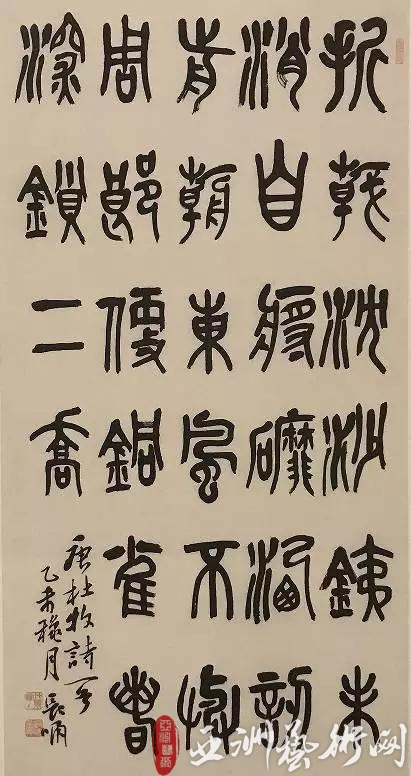 折戟沈沙銕未
消自將磨洗認
前朝東風不與
周郎便銅雀春
深鎖二喬
唐杜牧詩
乙未穐月
亚洲藝術网